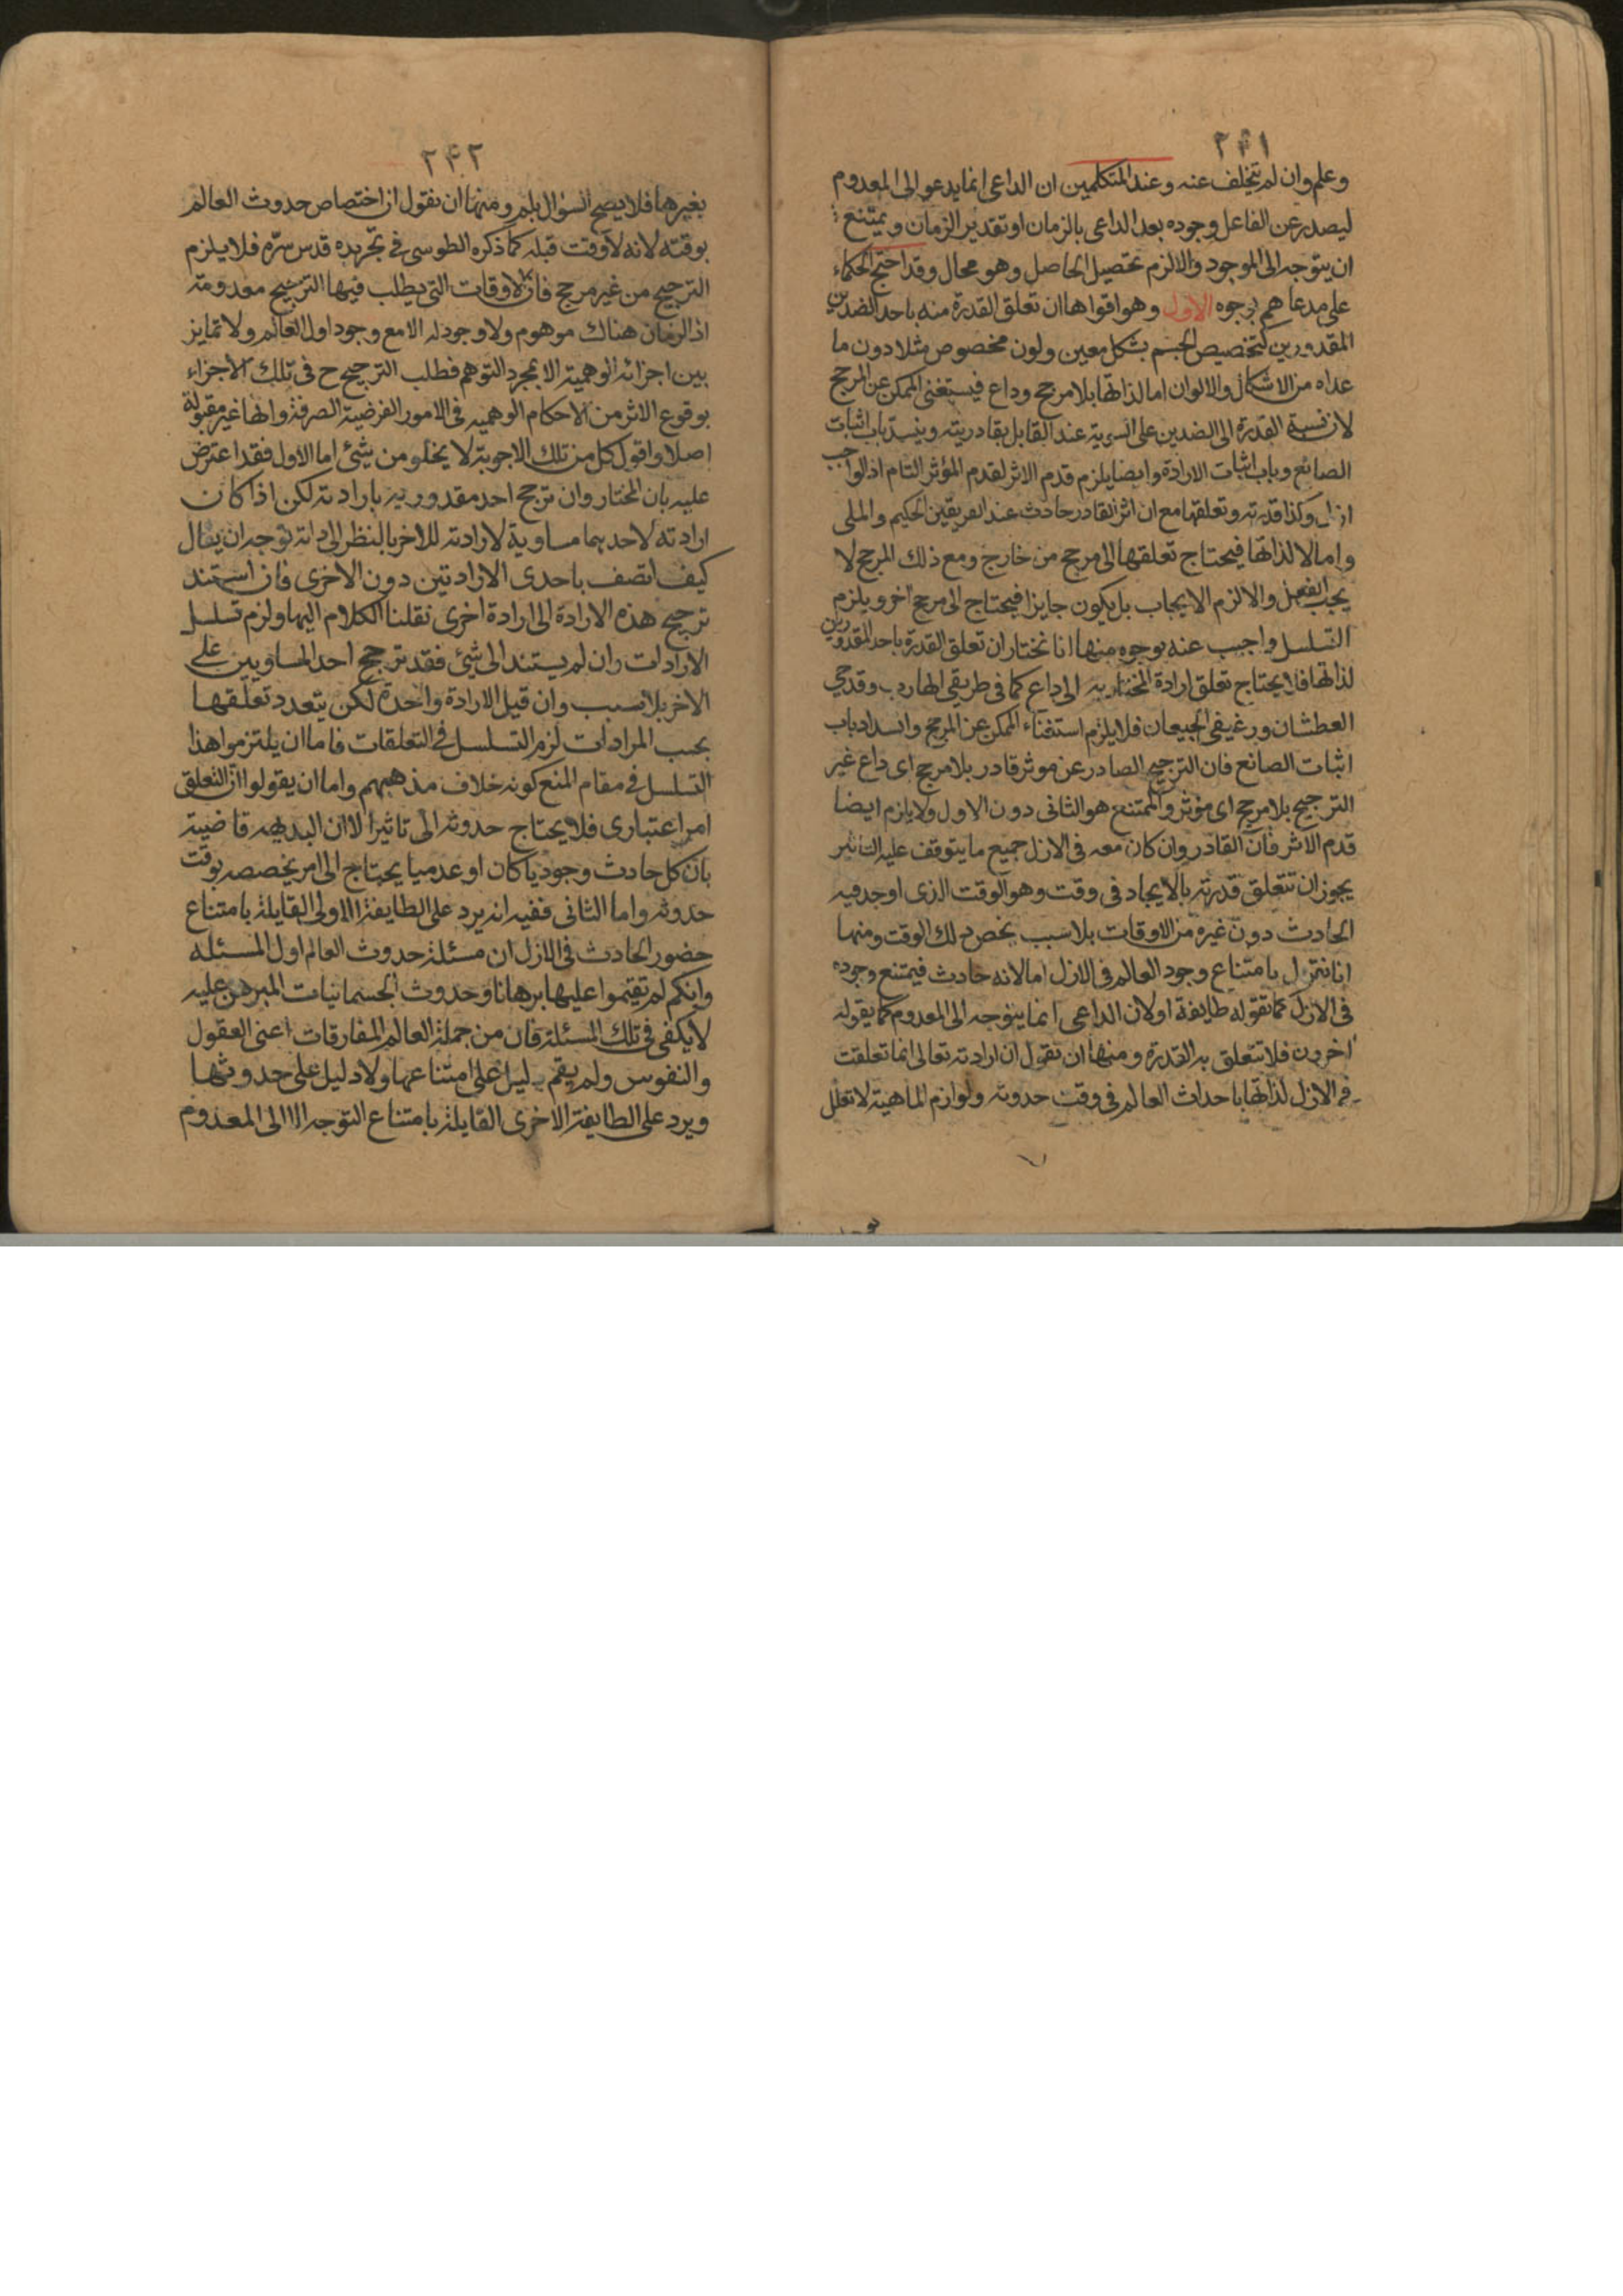 ٢٤١
وعلم وان لم يتخلف عنه وعند المتكلمين ان الداعى انما يدعو الى المعدوم
ليصدر عن الفاعل وجوده بعد الداعى بالزمان او تقدير الزمان ويمتنع
ان يتوجه الى الموجود والا لزم تحصيل الحاصل وهو محال وقد احتج الحكماء
على مدعاهم بوجوه الاول وهو اقواها ان تعلق القدرة منه باحد الضدين
المقدورين كتخصيص الجسم بشكل معين ولون مخصوص مثلا دون ما
عداه من الاشكال والالوان اما لذاتها بلا مرجح وداع فيستغنى الممكن عن المرجح
لان نسبة القدرة الى الضدين على السوية عند القايل بقادريته وينسد باب اثبات
الصانع وباب اثبات الارادة وايضا يلزم قدم الاثر لقدم المؤثر التام اذ الواجب
ازلى وكذا قدرته وتعلقها مع ان اثر القادر حادث عند الفريقين الحكيم والملى
واما لا لذاتها فيحتاج تعلقها الى مرجح من خارج ومع ذلك المرجح لا
يجب الفعل والا لزم الايجاب بل يكون جايزا فيحتاج الى مرجح اخر ويلزم
التسلسل واجيب عنه بوجوه منها انا نختار ان تعلق القدرة باحد المقدورين
لذاتها فلا يحتاج تعلق ارادة المختار به الى داع كما فى طريقى الهارب وقدحى
العطشان ورغيفى الجيعان فلا يلزم استغناء الممكن عن المرجح وانسداد باب
اثبات الصانع فان الترجيح الصادر عن موثر قادر بلا مرجح اى داع غير
الترجيح بلا مرجح اى مؤثر والممتنع هو الثانى دون الاول ولا يلزم ايضا
قدم الاثر فان القادر وان كان معه فى الازل جميع ما يتوقف عليه التاثير
يجوز ان تتعلق قدرته بالايجاد فى وقت وهو الوقت الذى اوجد فيه
الحادث دون غيره من الاوقات بلا سبب يخص ذلك الوقت ومنها
انا ننزل بامتناع وجود العالم فى الازل اما لانه حادث فيمتنع وجوده
فى الازل كما تقوله طايفة او لان الداعى انما يتوجه الى المعدوم كما يقوله
اخرون فلا تتعلق به القدرة ومنها ان نقول ان ارادته تعالى انما تعلقت
فى الازل لذاتها باحداث العالم فى وقت حدوثه ولوازم الماهية لا تعلل
٢٤٢
بغيرها فلا يصح السؤال بلم ومنها ان نقول ان اختصاص حدوث العالم
بوقته لانه لا وقت قبله كما ذكره الطوسى فى تجريده قدس سره فلا يلزم
الترجيح من غير مرجح فان الاوقات التى يطلب فيها الترجيح معدومة
اذ الزمان هناك موهوم ولا وجود له الا مع وجود اول العالم ولا تمايز
بين اجزائه الوهمية الا بمجرد التوهم فطلب الترجيح ح فى تلك الاجزاء
بوقوع الاثر من الاحكام الوهميه فى الامور الفرضية الصرفة وانها غير مقبولة
اصلا واقول كل من تلك الاجوبة لا يخلو من شئ اما الاول فقد اعترض
عليه بان المختار وان ترجح احد مقدوريه بارادته لكن اذا كان
ارادته لاحدهما مساوية لارادته للاخر بالنظر الى ذاته توجه ان يقال
كيف اتصف باحدى الارادتين دون الاخرى فان استند
ترجيح هذه الارادة الى ارادة اخرى نقلنا الكلام اليها ولزم تسلسل
الارادات وان لم يستند الى شئ فقد ترجح احد المساويين على
الاخر بلا سبب وان قيل الارادة واحدة لكن يتعدد تعلقها
بحسب المرادات لزم التسلسل فى التعلقات فاما ان يلتزموا هذا
التسلسل فى مقام المنع كونه خلاف مذهبهم واما ان يقولوا ان التعلق
امر اعتبارى فلا يحتاج حدوثه الى تاثير الا ان البديهه قاضية
بان كل حادث وجوديا كان او عدميا يحتاج الى امر يخصصه بوقت
حدوثه واما الثانى ففيه انه يرد على الطايفة الاولى القايلة بامتناع
حضور الحادث فى الازل ان مسئلة حدوث العالم اول المسئله
وانكم لم تقيموا عليها برهانا وحدوث الجسمانيات المبرهن عليه
لا يكفى فى تلك المسئلة فان من جملة العالم المفارقات اعنى العقول
والنفوس ولم يقم دليل على امتناعها ولا دليل على حدوثها
ويرد على الطايفة الاخرى القايلة بامتناع التوجه الا الى المعدوم